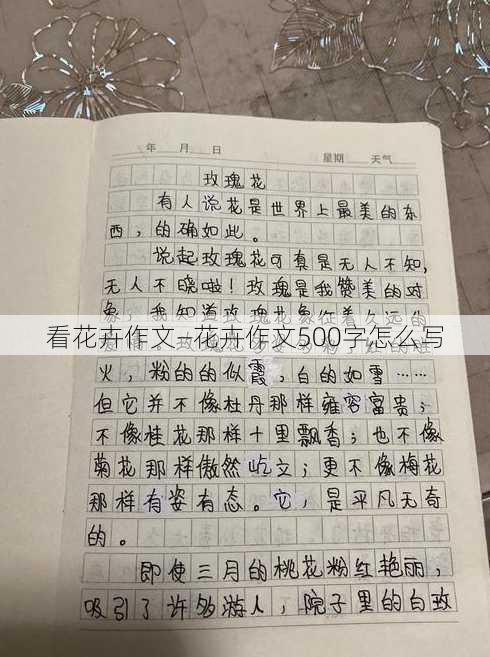 年 月 日 星期 天气
玫瑰花
有人说花是世界上最美的东
西，的确如此。
说起玫瑰花可真是无人不知，
无人不晓啦！玫瑰是我赞美的对
象，我知道玫瑰花象征着久远的
看花卉作文-花卉作文500字怎么写
火，粉的的似霞，白的如雪……
但它并不像杜丹那样雍容富贵；
不像桂花那样十里飘香；也不像
菊花那样傲然屹文；更不像梅花
那样有姿有态。它，是平凡无奇
的。
即使三月的桃花粉红艳丽，
吸引了许多游人，院子里的白玫